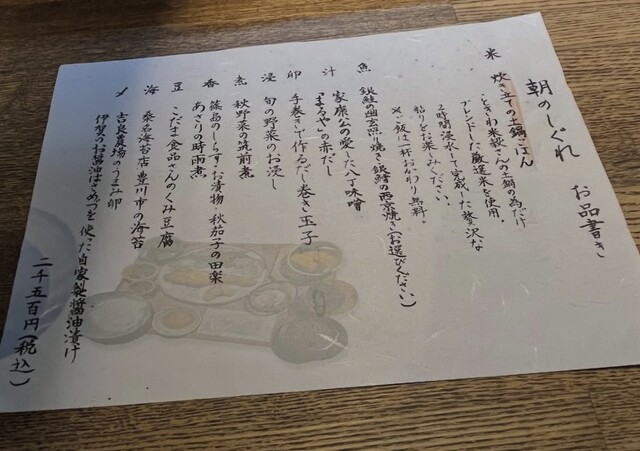 朝のしぐれ
お品書き
米 炊き立ての土鍋ごはん
ときわ米穀さんの土鍋の為だけ
ブレンドした厳選米を使用。
2時間浸水して完成した贅沢な
粘りをお楽しみください。
※ご飯は一杯おかわり無料。
魚 銀鮭の幽玄焼き・銀鱈の西京焼き(お選びください)
汁 家康公の愛した八丁味噌
「まるや」の赤だし
卵 手巻きで作るだし巻き玉子
浸 旬の野菜のお浸し
煮 秋野菜の筑前煮
あさりの時雨煮
香 篠島のしらす・お漬物・秋茄子の田楽
豆 こだま食品さんのくみ豆腐
海 桑名海苔店 豊川市の海苔
〆 吉良農場のうまみ卵
伊賀のお醤油はさめずを使った自家製醤油漬け
二千五百円(税込)